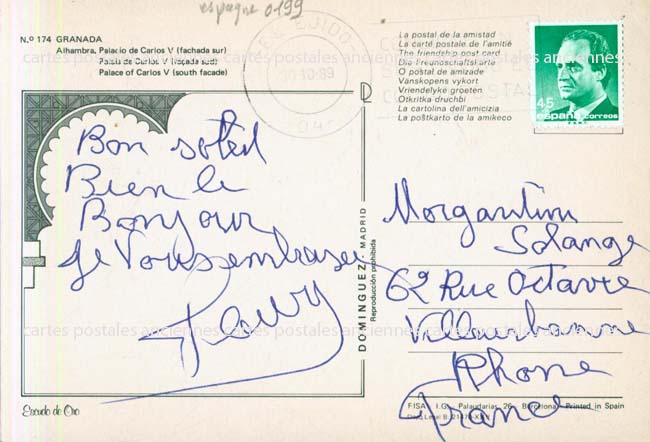 espagne 0199
N.º 174 GRANADA
Alhambra. Palacio de Carlos V (fachada sur)
Palais de Carlos V (façade sud)
Palace of Carlos V (south facade)
EL EJIDO
10-89
04
La postal de la amistad
La carte postale de l'amitié
The friendship post card
Die Freundschaftskarte
O postal de amizade
Vänskapens vykort
Vriendelyke groeten
Otkritka druchbi
La cartolina dell'amicizia
La poŝtkarto de la amikeco
45
españa correos
Bon soleil
Bien le
Bonjour
Je Vous embrasse
DOMINGUEZ - MADRID
Reproducción prohibida
Morgantini
Solange
62 Rue Octavie
Villeurbanne
Rhone
France
cartes postales anciennes
Escudo de Oro
FISA - I.G. - Palaudarias, 26 - Barcelona - Printed in Spain